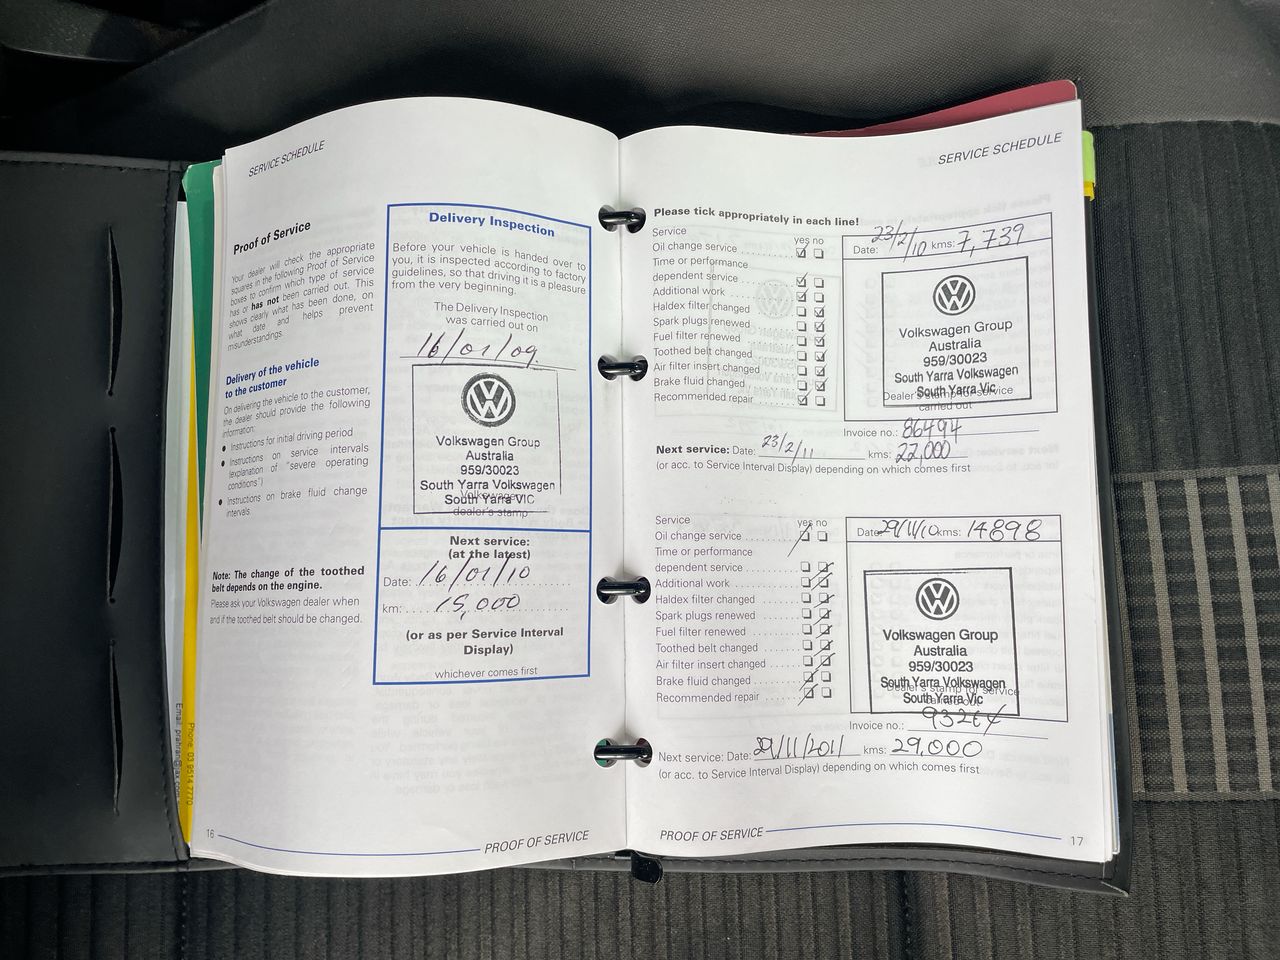 SERVICE SCHEDULE
Proof of Service
Your dealer will check the appropriate
squares in the following Proof of Service
boxes to confirm which type of service
has or has not been carried out. This
shows clearly what has been done, on
what date and helps prevent
misunderstandings.
Delivery of the vehicle
to the customer
On delivering the vehicle to the customer,
the dealer should provide the following
information:
● Instructions for initial driving period
● Instructions on service intervals
(explanation of "severe operating
conditions")
● Instructions on brake fluid change
intervals.
Note: The change of the toothed
belt depends on the engine.
Please ask your Volkswagen dealer when
and if the toothed belt should be changed.
Delivery Inspection
Before your vehicle is handed over to
you, it is inspected according to factory
guidelines, so that driving it is a pleasure
from the very beginning.
The Delivery Inspection
was carried out on
16/01/09
Volkswagen Group
Australia
959/30023
South Yarra Volkswagen
South Yarra VIC
Volkswagen
dealer's stamp
Next service:
(at the latest)
Date: 16/01/10
km: 15,000
(or as per Service Interval
Display)
whichever comes first
16
PROOF OF SERVICE
Phone: 03 9514 7770
SERVICE SCHEDULE
Please tick appropriately in each line!
Service yes no
Oil change service
Time or performance
dependent service
Additional work
Haldex filter changed
Spark plugs renewed
Fuel filter renewed
Toothed belt changed
Air filter insert changed
Brake fluid changed
Recommended repair
Date: 23/2/10 kms: 7,739
Volkswagen Group
Australia
959/30023
South Yarra Volkswagen
South Yarra Vic
Dealer's stamp for service
carried out
Invoice no.: 86494
Next service: Date: 23/2/11 kms: 22,000
(or acc. to Service Interval Display) depending on which comes first
Service yes no
Oil change service
Time or performance
dependent service
Additional work
Haldex filter changed
Spark plugs renewed
Fuel filter renewed
Toothed belt changed
Air filter insert changed
Brake fluid changed
Recommended repair
Date: 29/11/10 kms: 14898
Volkswagen Group
Australia
959/30023
South Yarra Volkswagen
South Yarra Vic
Dealer's stamp for service
carried out
Invoice no.:
Next service: Date: 29/11/2011 kms: 29,000
(or acc. to Service Interval Display) depending on which comes first
PROOF OF SERVICE
17